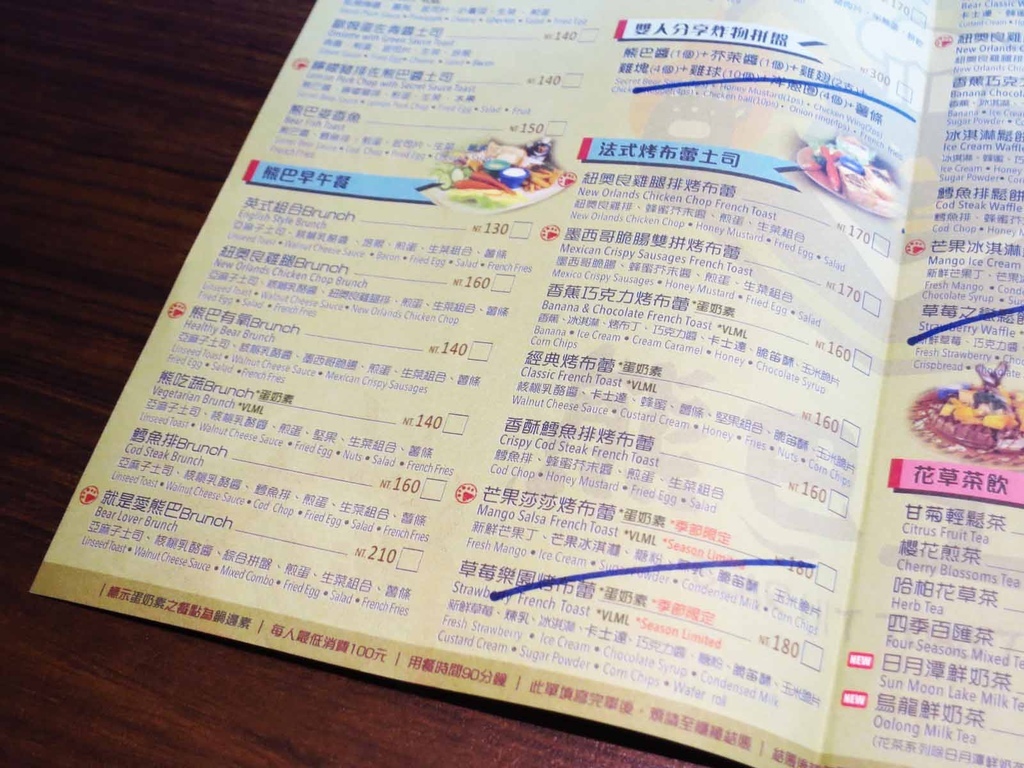 歐姆蛋佐青醬土司
Omelette with Green Sauce Toast
NT 140
檸檬豬排佐熊巴醬土司
Lemon Pork Chop with Secret Sauce Toast
NT 140
熊巴婆香魚
Bear Fish Toast
NT 150
French Fries
熊巴早午餐
英式組合Brunch
English Style Brunch
NT 130
亞麻子土司、核桃乳酪醬、培根、煎蛋、生菜組合、薯條
Linseed Toast • Walnut Cheese Sauce • Bacon • Fried Egg • Salad • French Fries
紐奧良雞腿Brunch
New Orlands Chicken Chop Brunch
NT 160
亞麻子土司、核桃乳酪醬、紐奧良雞腿排、煎蛋、生菜組合、薯條
Linseed Toast • Walnut Cheese Sauce • New Orlands Chicken Chop
Fried Egg • Salad • French Fries
熊巴有氧Brunch
Healthy Bear Brunch
NT 140
亞麻子土司、核桃乳酪醬、墨西哥脆腸、煎蛋、生菜組合、薯條
Linseed Toast • Walnut Cheese Sauce • Mexican Crispy Sausages
Fried Egg • Salad • French Fries
熊吃蔬Brunch *蛋奶素
Vegetarian Brunch *VLML
NT 140
亞麻子土司、核桃乳酪醬、煎蛋、堅果、生菜組合、薯條
Linseed Toast • Walnut Cheese Sauce • Fried Egg • Nuts • Salad • French Fries
鱈魚排Brunch
Cod Steak Brunch
NT 160
亞麻子土司、核桃乳酪醬、鱈魚排、煎蛋、生菜組合、薯條
Linseed Toast • Walnut Cheese Sauce • Cod Chop • Fried Egg • Salad • French Fries
就是愛熊巴Brunch
Bear Lover Brunch
NT 210
亞麻子土司、核桃乳酪醬、綜合拼盤、煎蛋、生菜組合、薯條
Linseed Toast • Walnut Cheese Sauce • Mixed Combo • Fried Egg • Salad • French Fries
雙人分享炸物拼盤
熊巴醬(1個)+芥茉醬(1個)+雞翅(2支)+
雞塊(4個)+雞球(10個)+洋蔥圈(4個)+薯條
300
法式烤布蕾土司
紐奧良雞腿排烤布蕾
New Orlands Chicken Chop French Toast
NT 170
紐奧良雞腿排、蜂蜜芥末醬、煎蛋、生菜組合
New Orlands Chicken Chop • Honey Mustard • Fried Egg • Salad
墨西哥脆腸雙拼烤布蕾
Mexican Crispy Sausages French Toast
NT 170
墨西哥脆腸、蜂蜜芥末醬、煎蛋、生菜組合
Mexico Crispy Sausages • Honey Mustard • Fried Egg • Salad
香蕉巧克力烤布蕾 *蛋奶素
Banana & Chocolate French Toast *VLML
NT 160
香蕉、冰淇淋、烤布丁、巧克力醬、卡士達、脆笛酥、玉米脆片
Banana • Ice Cream • Cream Caramel • Honey • Chocolate Syrup
Corn Chips
經典烤布蕾 *蛋奶素
Classic French Toast *VLML
NT 160
核桃乳酪醬、卡士達、蜂蜜、薯條、堅果組合、脆笛酥、玉米脆片
Walnut Cheese Sauce • Custard Cream • Honey • Fries • Nuts • Corn Chips
香酥鱈魚排烤布蕾
Crispy Cod Steak French Toast
NT 160
鱈魚排、蜂蜜芥末醬、煎蛋、生菜組合
Cod Chop • Honey Mustard • Fried Egg • Salad
芒果莎莎烤布蕾 *蛋奶素 *季節限定
Mango Salsa French Toast *VLML *Season Limited
180
新鮮芒果丁、芒果冰淇淋、糖粉、煉乳、脆笛酥、玉米脆片
Fresh Mango • Ice Cream • Sugar Powder • Condensed Milk • Corn Chips
草莓樂園烤布蕾 *蛋奶素 *季節限定
Strawberry French Toast *VLML *Season Limited
NT 180
新鮮草莓、煉乳、冰淇淋、卡士達、巧克力醬、糖粉、脆笛酥、玉米脆片
Fresh Strawberry • Ice Cream • Chocolate Syrup • Condensed Milk
Custard Cream • Sugar Powder • Corn Chips • Wafer roll
標示蛋奶素之餐點為鍋邊素 | 每人最低消費100元 | 用餐時間90分鐘 | 此單填寫完畢後，煩請至櫃檯結帳
NT 170
Bear Classic
卡士達
紐奧良雞
New Orlands Chi
香蕉巧克
Banana Choco
Sugar Powder • Co
冰淇淋鬆餅
Ice Cream Waffle
Ice Cream • Honey
Sugar Powder • Co
鱈魚排鬆餅
Cod Steak Waffle
Cod Chop • Honey M
芒果冰淇淋
Mango Ice Cream
新鮮芒果丁、芒果
Fresh Mango • Cond
Chocolate Syrup • Su
草莓之戀鬆餅
Strawberry Waffle
新鮮草莓、巧克力
Fresh Strawberry • Cho
Crispbread • Chocolate
花草茶飲
甘菊輕鬆茶
Citrus Fruit Tea
櫻花煎茶
Cherry Blossoms Tea
哈柏花草茶
Herb Tea
四季百匯茶
Four Seasons Mixed Tea
NEW 日月潭鮮奶茶
Sun Moon Lake Milk Tea
NEW 烏龍鮮奶茶
Oolong Milk Tea
(花茶系列除日月潭鮮奶茶